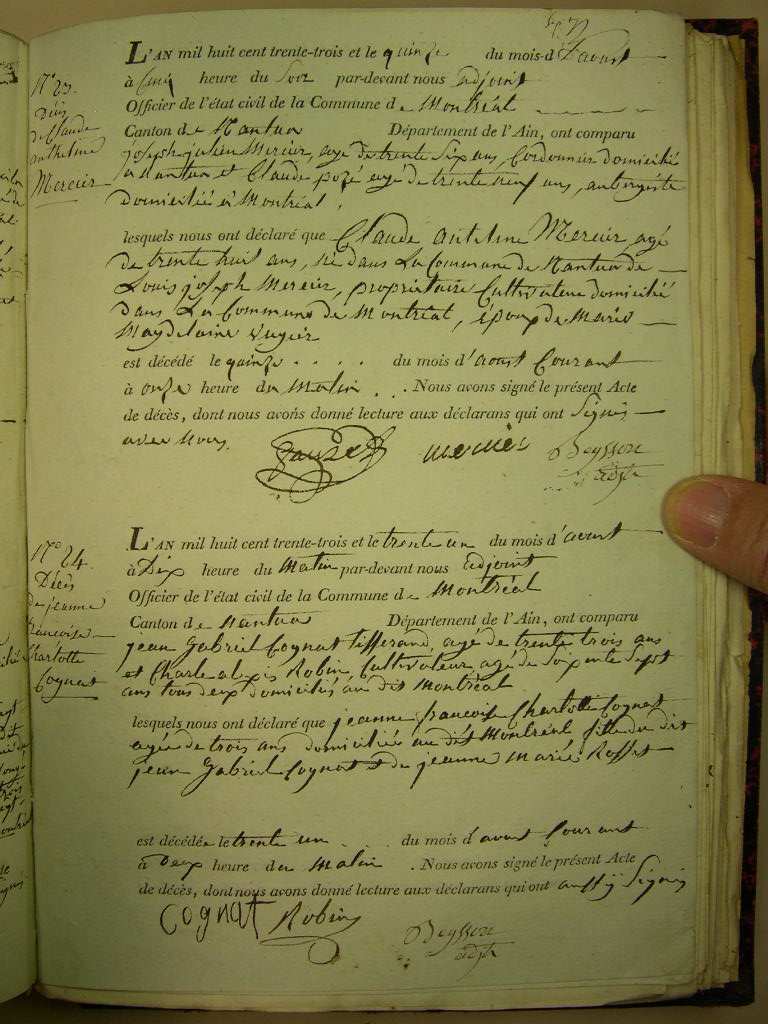 N° 23.
Décès
de Claude
anthelme
Mercier
L'AN mil huit cent trente-trois et le quinze du mois d'aoust
à Cinq heure du Soir par-devant nous adjoint
Officier de l'état civil de la Commune de Montréal
Canton de Nantua Département de l'Ain, ont comparu
joseph julien Mercier, agé de trente Six ans, Cordonnier domicilié
a Nantua et Claude pozé agé de trente neuf ans, aubergiste
domiciliés à Montréal.
lesquels nous ont déclaré que Claude antelme Mercier agé
de trente huit ans, né dans La Commune de Nantua de
Louis joseph Mercier, propriétaire Cultivateur domicilié
dans La Commune de Montréal, époux de Marie
Magdelaine
est décédé le quinze du mois d'aoust Courant
à onze heure du Matin . Nous avons signé le présent Acte
de décès, dont nous avons donné lecture aux déclarans qui ont Signés
avec Nous.
mercier Beysson
adjt
N° 24.
Décès
de jeanne
francoise
Charlotte
Cognat
L'AN mil huit cent trente-trois et le trente un du mois d'aoust
à Dix heure du Matin par-devant nous adjoint
Officier de l'état civil de la Commune de Montréal
Canton de Nantua Département de l'Ain, ont comparu
jean Gabriel Cognat tisserand, agé de trente trois ans
et Charle alexis Robin, Cultivateur agé de Soixante Sept
ans tous deux domiciliés au dit Montréal.
lesquels nous ont déclaré que jeanne francoise Charlotte Cognat
agée de trois ans domiciliée au dit Montréal fille du dit
jean Gabriel Cognat et de jeanne Marie Rosset
est décédée le trente un du mois d'aoust Courant
à Deux heure du Matin . Nous avons signé le présent Acte
de décès, dont nous avons donné lecture aux déclarans qui ont aussy Signés
Cognat Robin Beysson
adjt